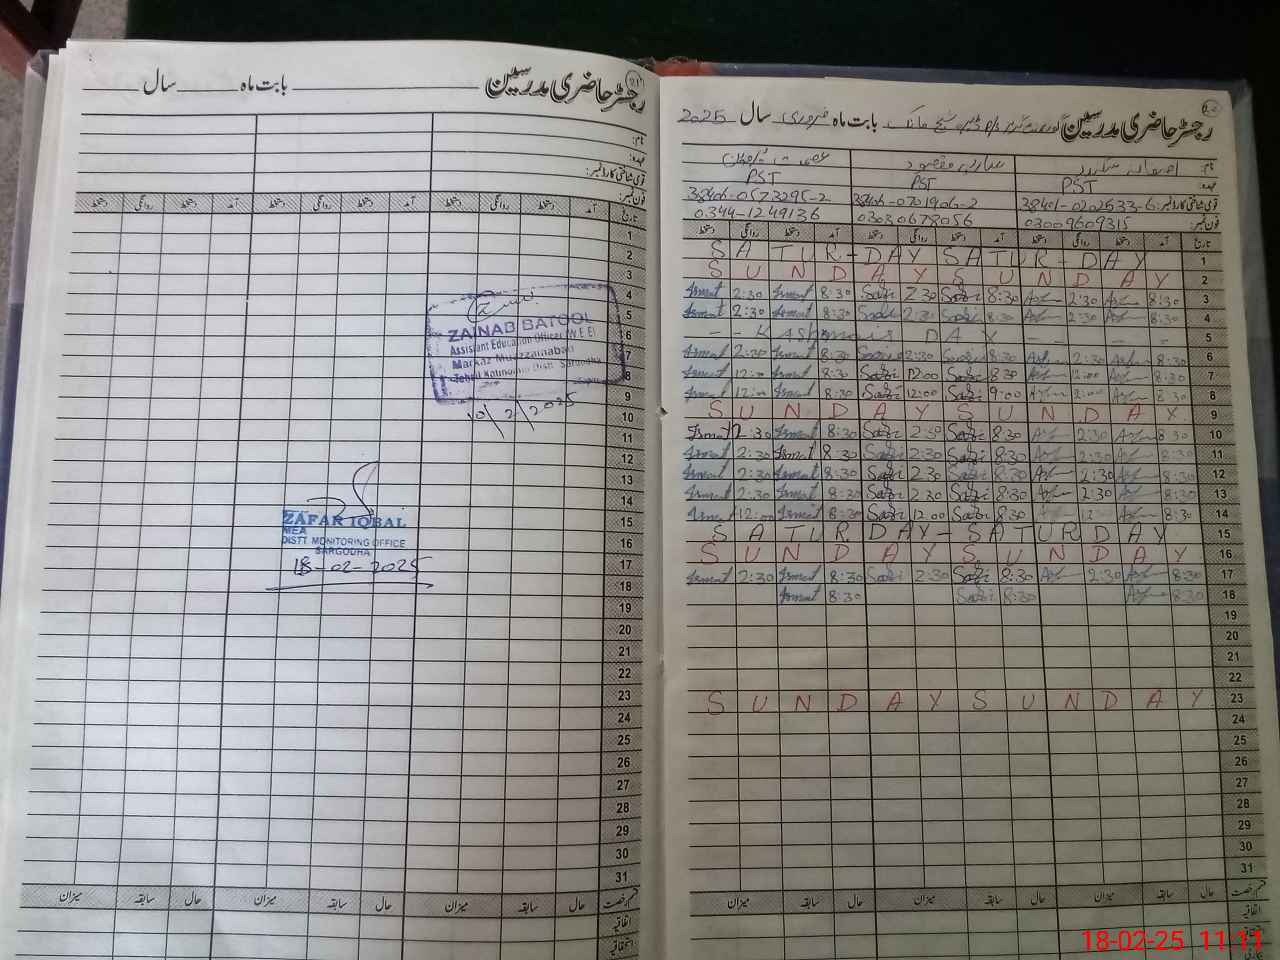 رجسٹر حاضری مدرسین بابت ماہ سال
نام:
عہدہ:
قومی شناختی کارڈ نمبر:
فون نمبر:
تاریخ آمد دستخط روانگی دستخط آمد دستخط روانگی دستخط آمد دستخط روانگی دستخط
1
2
3
4
5
6
7
8
9
10
11
12
13
14
15
16
17
18
19
20
21
22
23
24
25
26
27
28
29
30
31
ZAINAB BATOOL
Assistant Education Officer (W.E.E)
Markaz Muazzamabad
Tehsil Kotmomin Distt. Sargodha
10/2/2025
ZAFAR IQBAL
MEA
DISTT MONITORING OFFICE
SARGODHA
18-02-2025
قسم رخصت حال سابقہ میزان حال سابقہ میزان حال سابقہ میزان
اتفاقیہ
استحقاقیہ
رجسٹر حاضری مدرسین بابت ماہ فروری سال 2025
نام:
عہدہ: PST PST PST
قومی شناختی کارڈ نمبر: 38401-0202533-6 38406-0701906-2 38406-0573295-2
فون نمبر: 03009609315 03030678056 0344-1249136
تاریخ آمد دستخط روانگی دستخط آمد دستخط روانگی دستخط آمد دستخط روانگی دستخط
SATUR-DAY SATUR-DAY 1
SUNDAY SUNDAY 2
Ismat 2:30 Ismat 8:30 2:30 8:30 2:30 8:30 3
Ismat 2:30 Ismat 8:30 2:30 8:30 2:30 8:30 4
- - Kashmair DAY - - - - 5
Ismat 2:30 Ismat 8:30 2:30 8:30 2:30 8:30 6
Ismat 12:00 Ismat 8:30 12:00 8:30 12:00 8:30 7
Ismat 12:00 Ismat 8:30 12:00 9:00 8:30 8
SUNDAY SUNDAY 9
Ismat 2:30 Ismat 8:30 2:30 8:30 2:30 8:30 10
Ismat 2:30 Ismat 8:30 2:30 8:30 2:30 8:30 11
Ismat 2:30 Ismat 8:30 2:30 8:30 2:30 8:30 12
Ismat 2:30 Ismat 8:30 2:30 8:30 2:30 8:30 13
Ismat 12:00 Ismat 8:30 12:00 8:30 12 8:30 14
SATURDAY-SATURDAY 15
SUNDAY SUNDAY 16
Ismat 2:30 Ismat 8:30 2:30 8:30 2:30 8:30 17
Ismat 8:30 8:30 8:30 18
19
20
21
22
SUNDAY SUNDAY 23
24
25
26
27
28
29
30
31
قسم رخصت حال سابقہ میزان حال سابقہ میزان حال سابقہ میزان
اتفاقیہ
استحقاقیہ
18-02-25 11:11